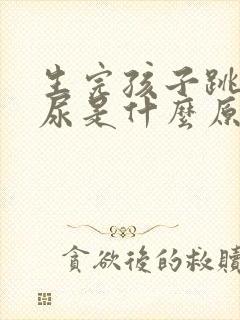 生完孩子跳
尿是什麼原
貪欲後的救贖